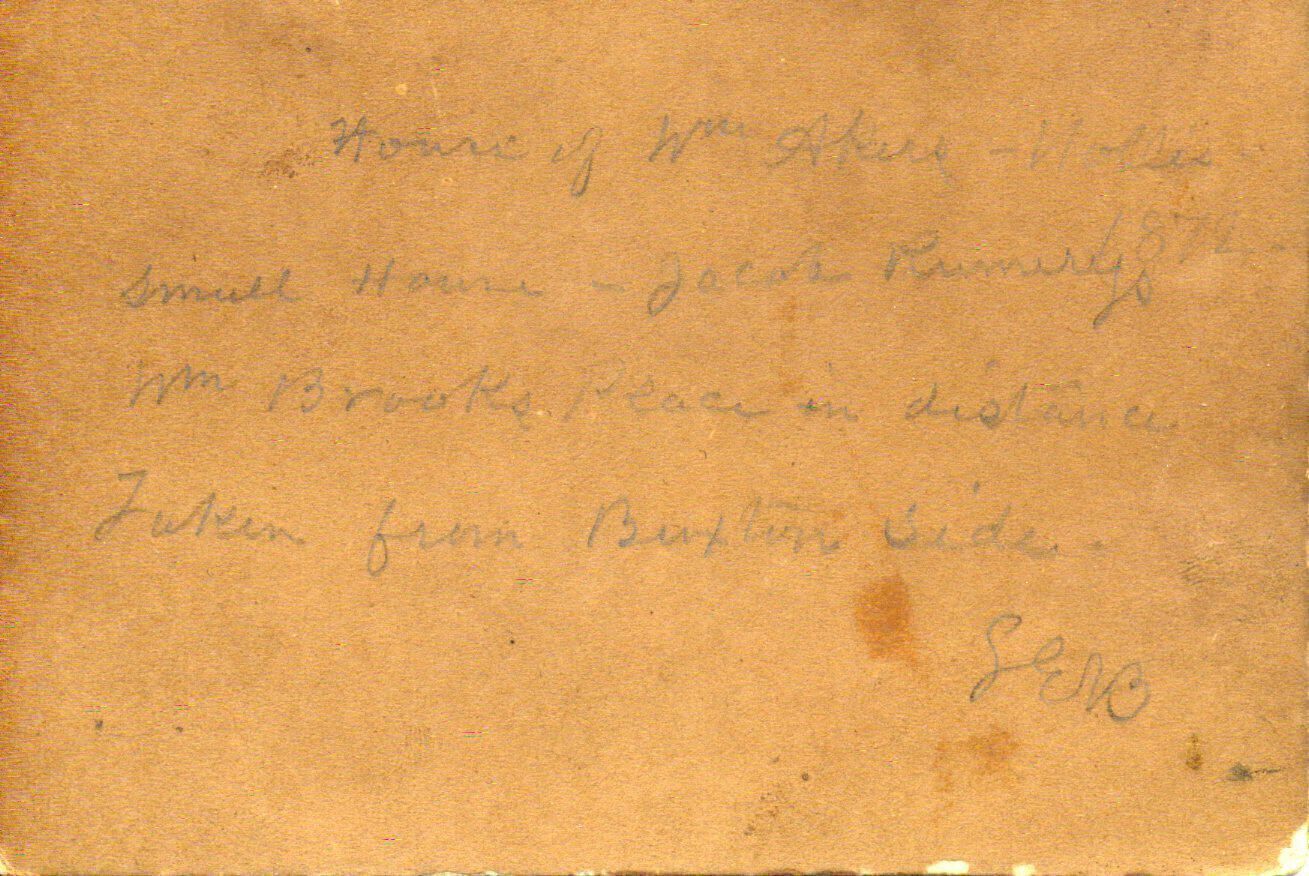 House of Wm Akers - Hollis -
Small House - Jacob Rumery's
Wm Brooks Place in distance
Taken from Buxton side -